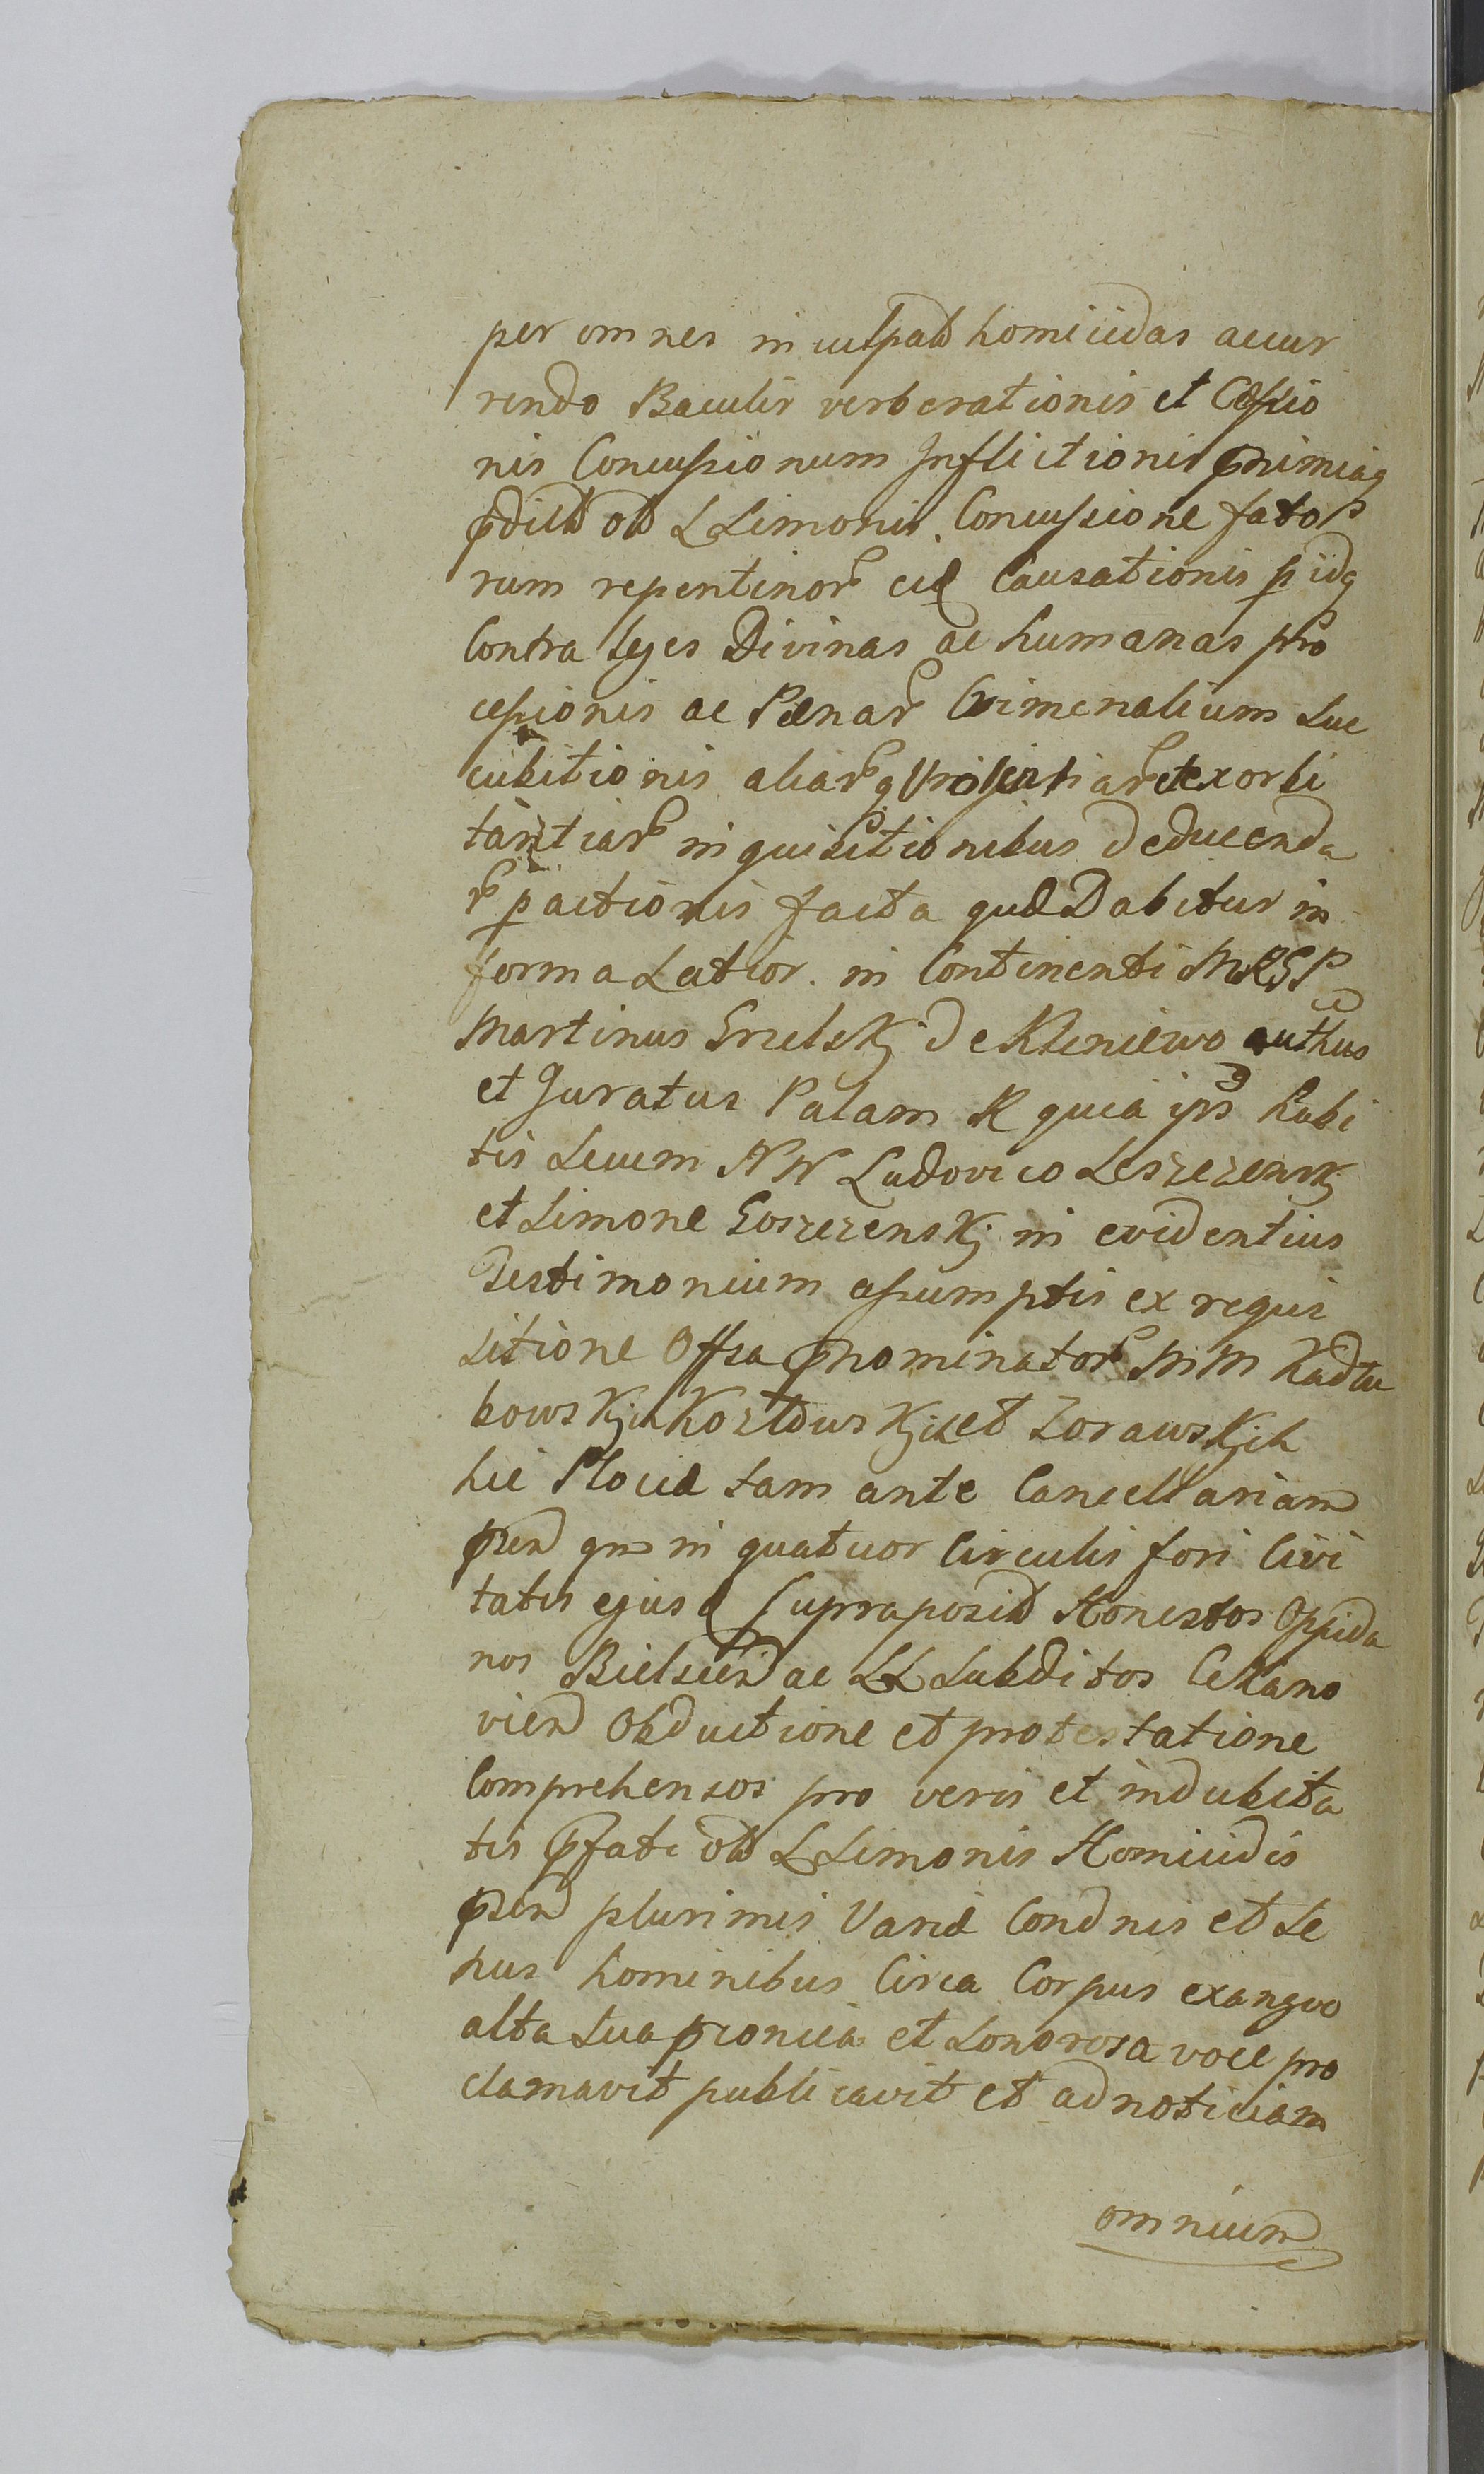 per omnes inculpat homicidas accur
rendo Baculis verberationis et Cæssio
nis Concussionum Inflictionis nimiaq
pdict ol L Simonis Concussione fato
rum repentinor eid Causationis p idq
Contra leges Divinas ac humanas pro
cessionis ac Pænar Criminalium Suc
cubitionis aliarq et exorbi
tantiar inquisitionibus deducenda
r pactionis facta quæ Dabitur in
forma Latior. in Continenti MRSP
Martinus Grzelskj de Kleniewo authus
et Juratus Palam R quia ips habi
tis Secum NN Ludovico Leszczenskj
et Simone Goszczenskj in evidentius
Testimonium assumptis ex requi
sitione Offsa pnominator MM Kadłu
bowskjch Kozłowskjch et Zorawskjch
hic Plociæ tam ante Cancellariam
psen qm in quatuor Circulis fori Civi
tatis ejusd supraposit Honestos Oppida
nos Bielscen ac LL Subditos Cekano
vien Obductione et protestatione
Comprehensos pro veris et indubita
tis pfati ol L Simonis Homicidis
psen plurimis Variæ Condnis et Se
xus hominibus Circa Corpus exangve
alta Sua pconica et Sonorosa voce pro
clamavit publicavit et ad noticiam
omnium